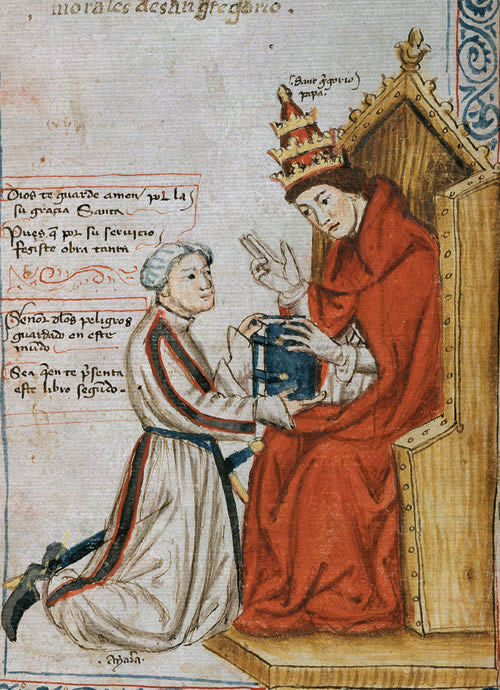 morales de san gregorio.
Sant g̃gorio
papa.
Dios te guarde amen por la
su gracia Santa
Pues q̃ por su servicio
feziste obra tanta
Señor dlos peligros
guardado en este
mundo
Sea q̃en te p̃senta
este libro segundo.
Ayara.